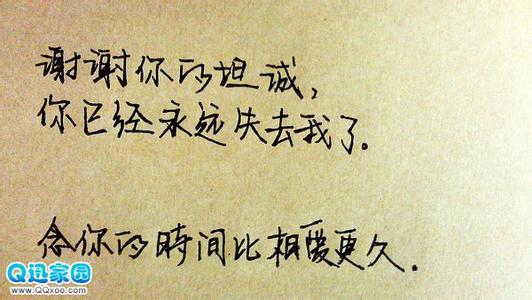 谢谢你的坦诚，
你已经永远失去我了.
念你的時间比相爱更久.
Q迅家园
www.QQxoo.com